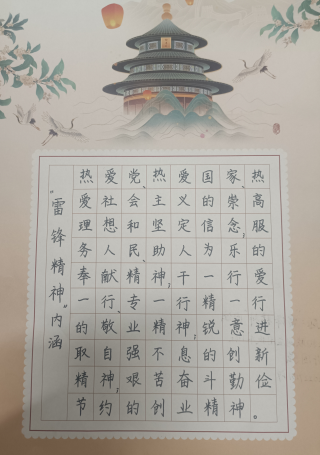 “雷锋精神”内涵
热爱党、热爱国家、热
爱社会主义的崇高
理想和坚定信念;服
务人民、助人为乐的
奉献精神;干一行爱
一行、专一行精一行
的敬业精神;锐意进
取自强不息的创新
精神;艰苦奋斗勤俭
节约的创业精神。